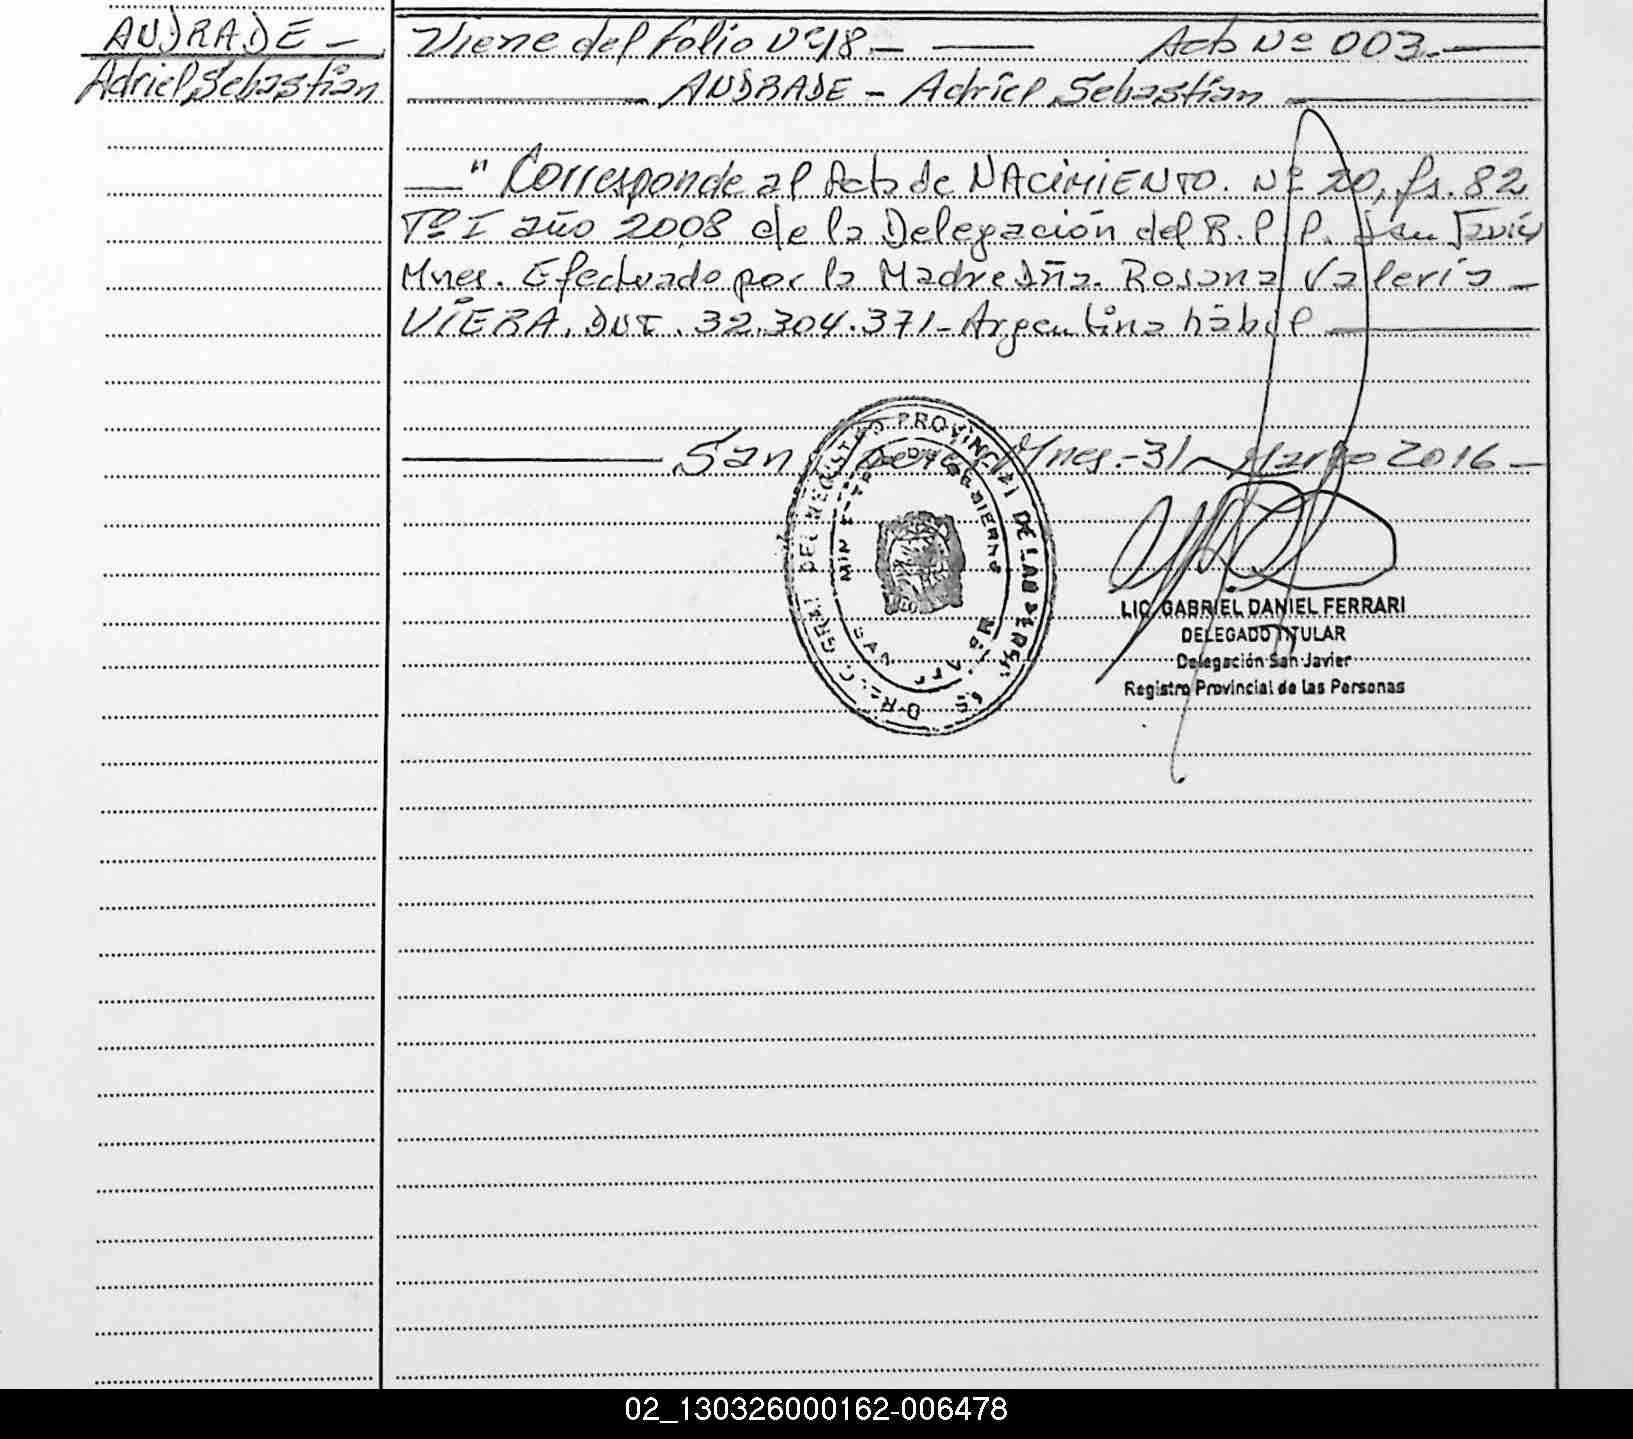 ANDRADE -
Adriel Sebastián
Viene del folio Nº 18.- Acta Nº 003.-
ANDRADE - Adriel Sebastián
" Corresponde al Acta de NACIMIENTO. Nº 20, fs. 82
Tº I año 2008 de la Delegación del R.P.P. San Javier
Mnes. Efectuado por la Madre Dña. Rosana Valeria -
VIERA. DNI. 32.304.371- Argentina hábil
San Javier Mnes.- 31 - Marzo 2016 -
PROVINCIAL DE LAS
LIC. GABRIEL DANIEL FERRARI
DELEGADO TITULAR
Delegación San Javier
Registro Provincial de las Personas
02_130326000162-006478